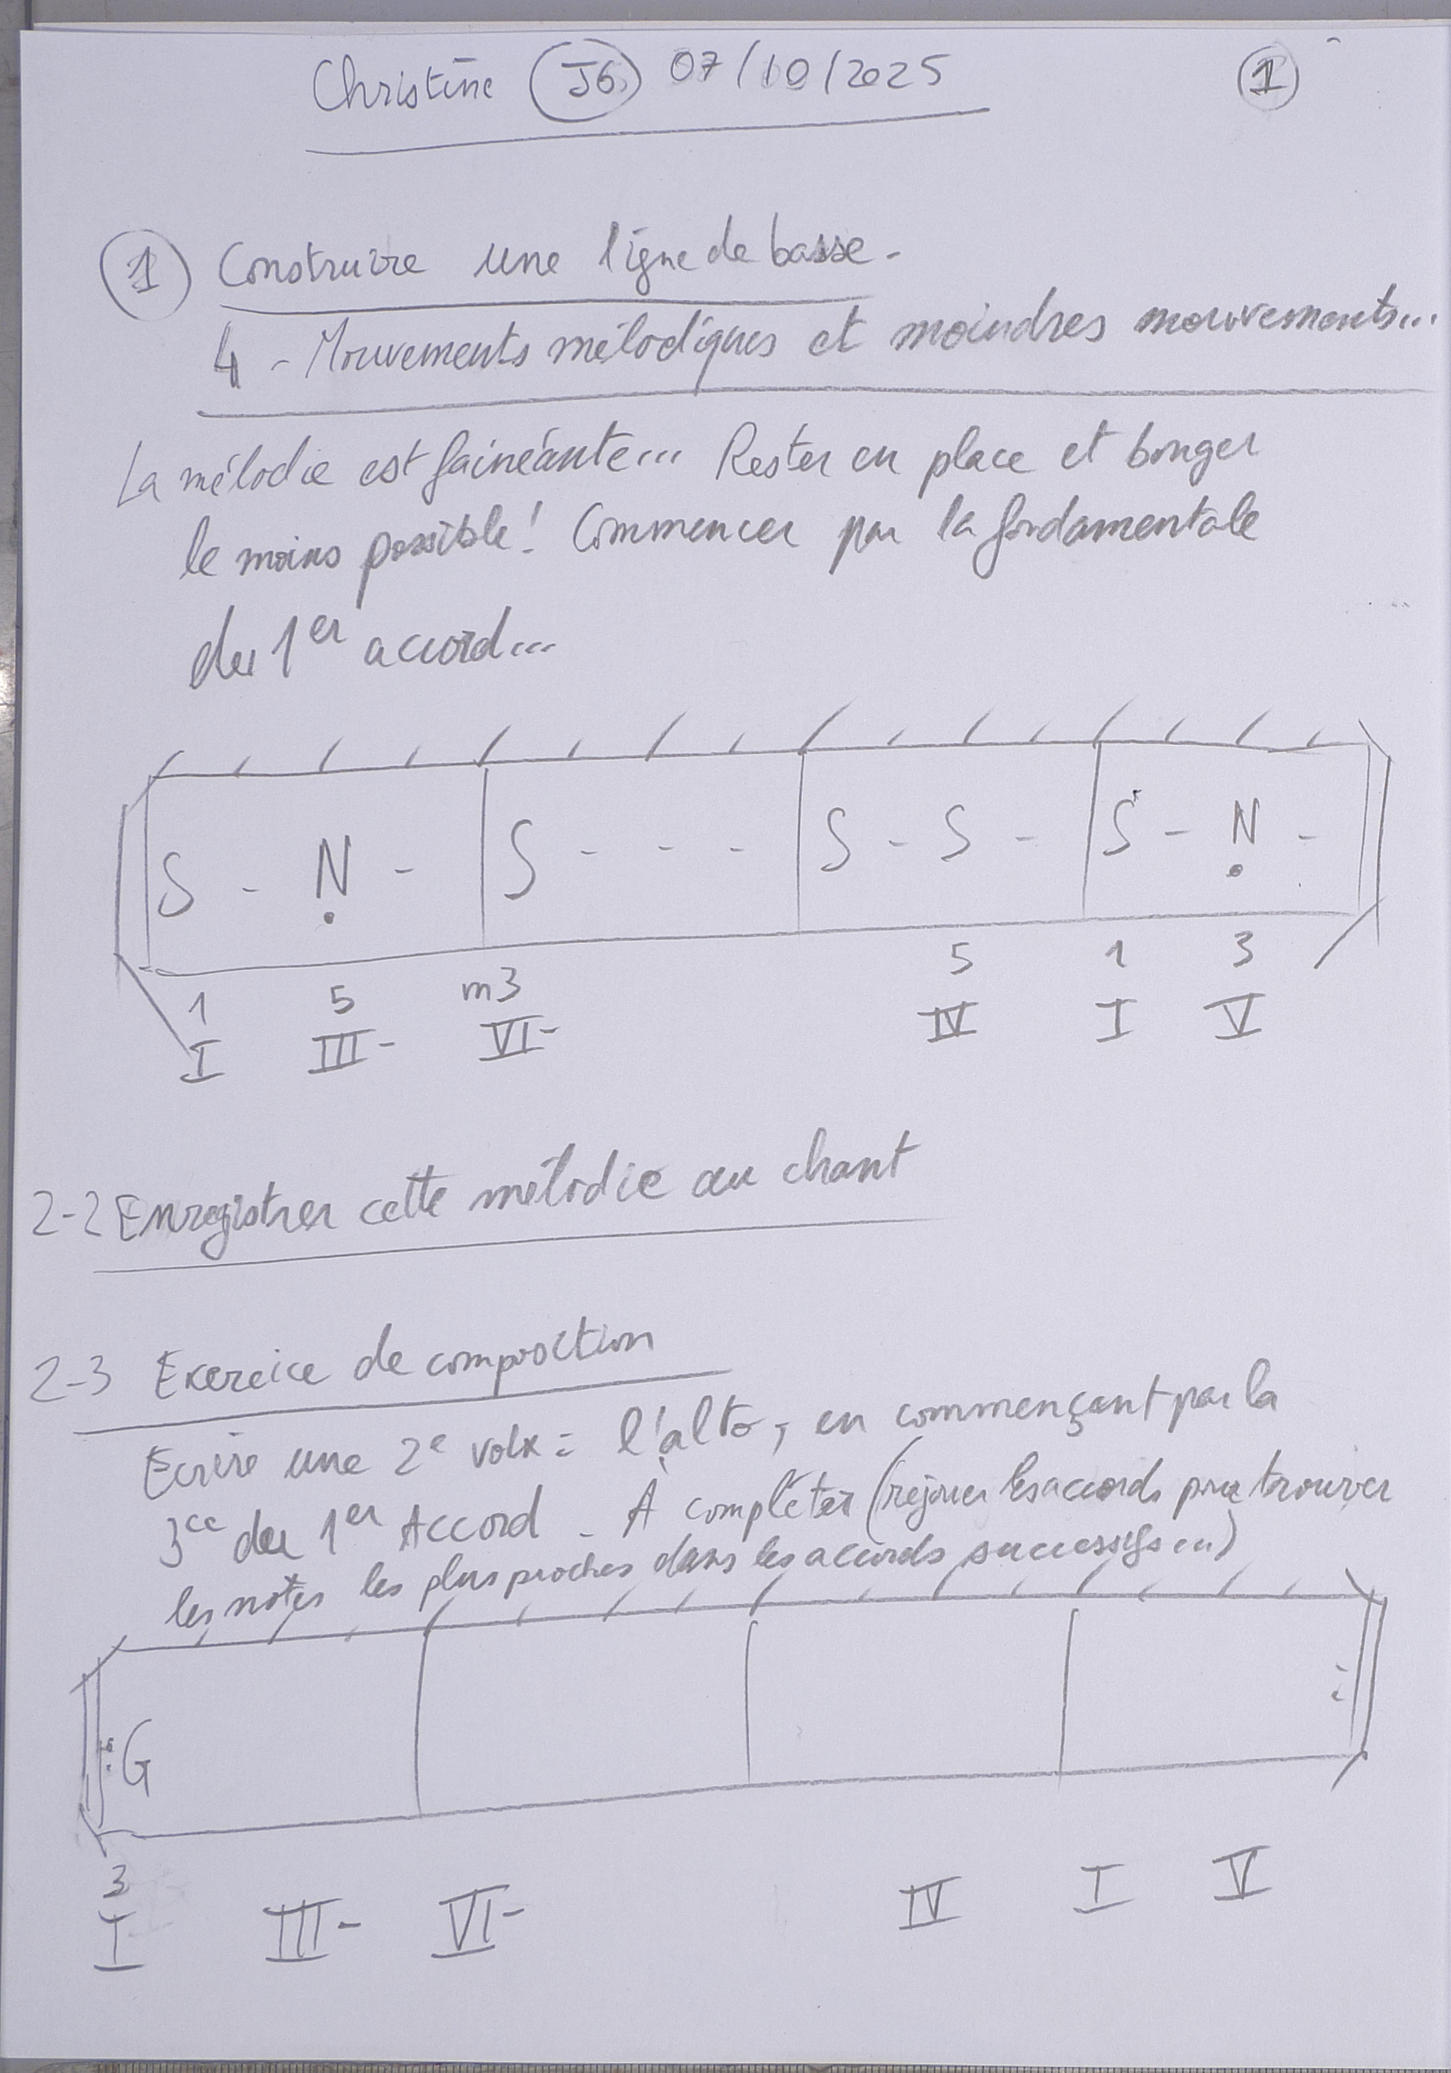 Christine J6 07/10/2025 1
1 Construire une ligne de basse.
4 - Mouvements mélodiques et moindres mouvements...
La mélodie est fainéante... Rester en place et bouger
le moins possible! Commencer par la fondamentale
du 1er accord...
S - N - S - - - S - S - S - N -
1 5 m3 5 1 3
I III- VI- IV I V
2-2 Enregistrer cette mélodie au chant
2-3 Exercice de composition
Ecrire une 2e voix = l'alto, en commençant par la
3ce du 1er Accord - À compléter (rejouer les accords pour trouver
les notes les plus proches dans les accords successifs...)
: G :
3
I III- VI- IV I V